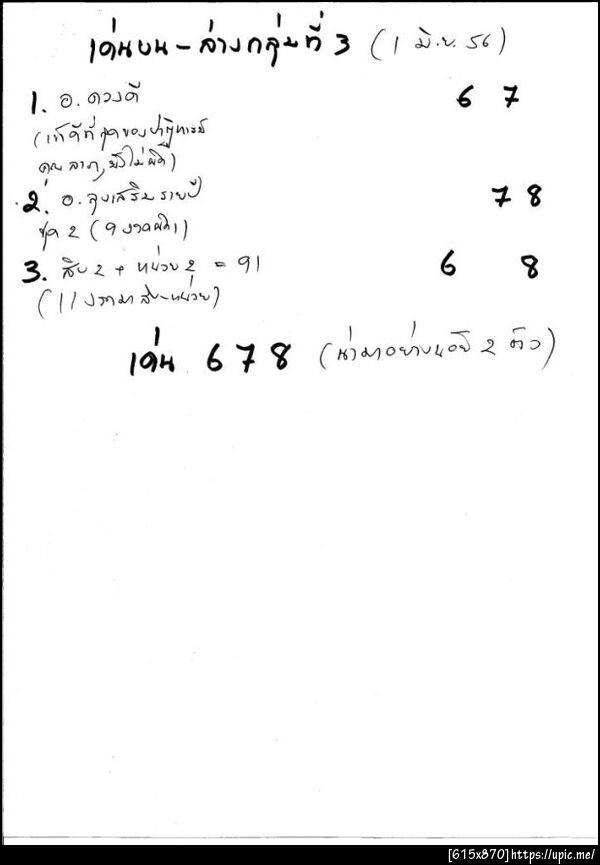 เด่นบน - ล่างกลุ่มที่ 3 (1 มิ.ย. 56)
1. อ. ดวงดี 6 7
(เก้ดีที่สุดของปาฏิหารย์
คุณลาภ, ยังไม่ผิด)
2. อ. ลุงเสริม รายปี 7 8
ชุด 2 (9 งวดผิด 1)
3. สิบ 2 + หน่วย 2 = 91 6 8
(11 งวดมา สิบ-หน่วย)
เด่น 6 7 8 (น่ามาอย่างน้อย 2 ตัว)
[615x870]https://upic.me/